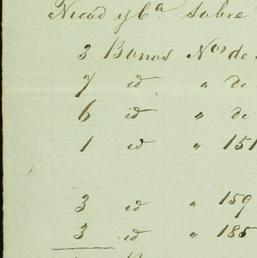 Nicod y Cª sobre
3 Bonos Nos de
7 id " de
6 id " de
1 id " 151
3 id " 159
3 id " 185